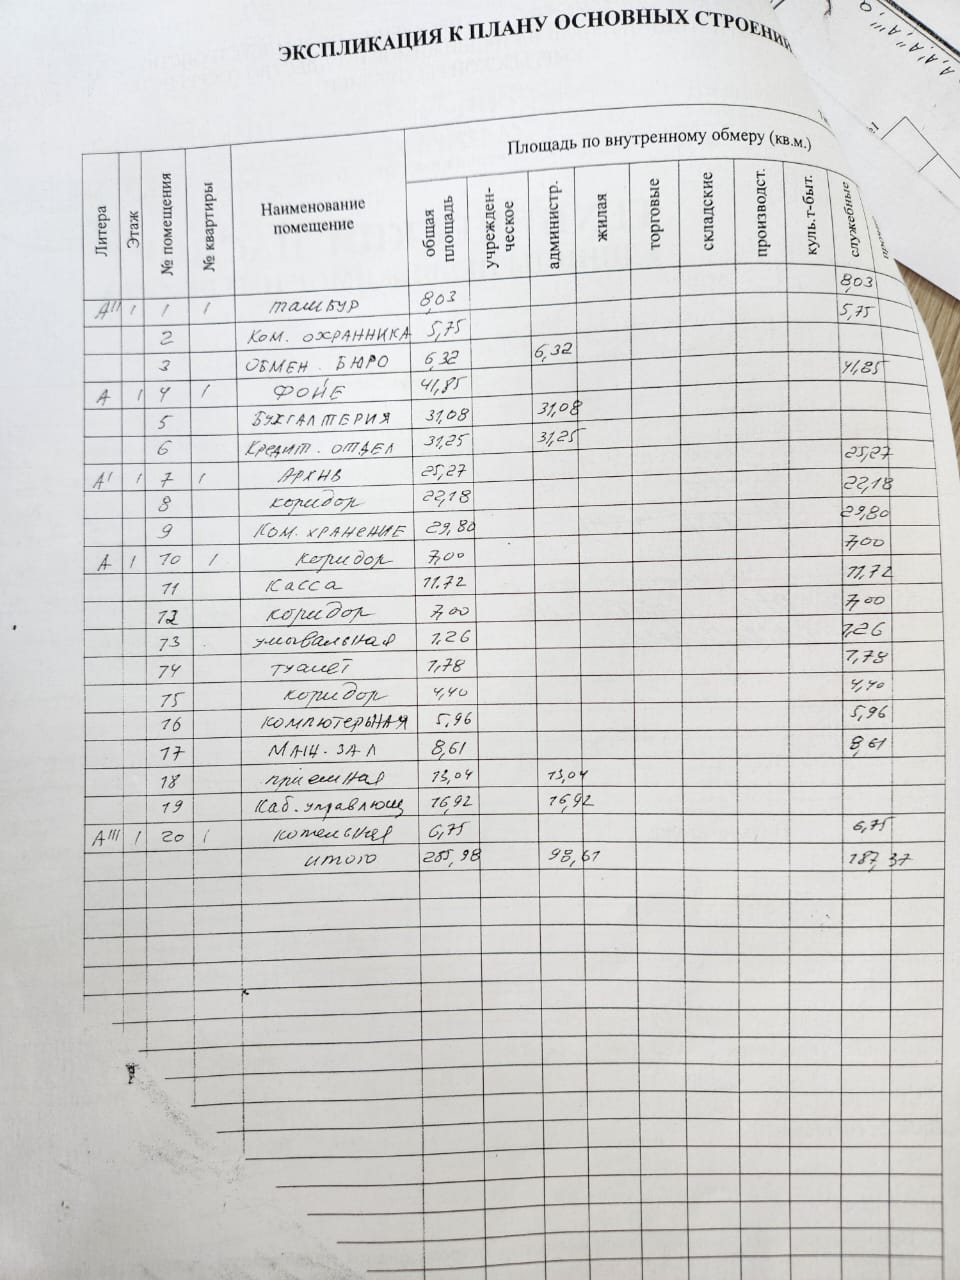 ЭКСПЛИКАЦИЯ К ПЛАНУ ОСНОВНЫХ СТРОЕНИ
Площадь по внутренному обмеру (кв.м.)
Литера Этаж № помещения № квартиры Наименование помещение общая площадь учрежден-ческое администр. жилая торговые складские производст. куль.т-быт. служебные
А" 1 1 1 тамбур 8,03 8,03
2 Ком. охранника 5,75 5,75
3 Обмен. бюро 6,32 6,32
А 1 4 1 Фойе 41,85 41,85
5 Бухгалтерия 31,08 31,08
6 Кредит. отдел 31,25 31,25
А' 1 7 1 Архив 25,27 25,27
8 коридор 22,18 22,18
9 Ком. хранение 29,80 29,80
А 1 10 1 коридор 7,00 7,00
11 Касса 11.72 11,72
12 коридор 7,00 7,00
13 умывальная 1,26 1,26
14 туалет 1,78 1,78
15 коридор 4,40 4,40
16 компютерная 5,96 5,96
17 Маш. зал 8,61 8,61
18 приемная 13,04 13,04
19 Каб. управлющ 16,92 16,92
А''' 1 20 1 котельная 6,75 6,75
итого 285,98 98,61 187,37